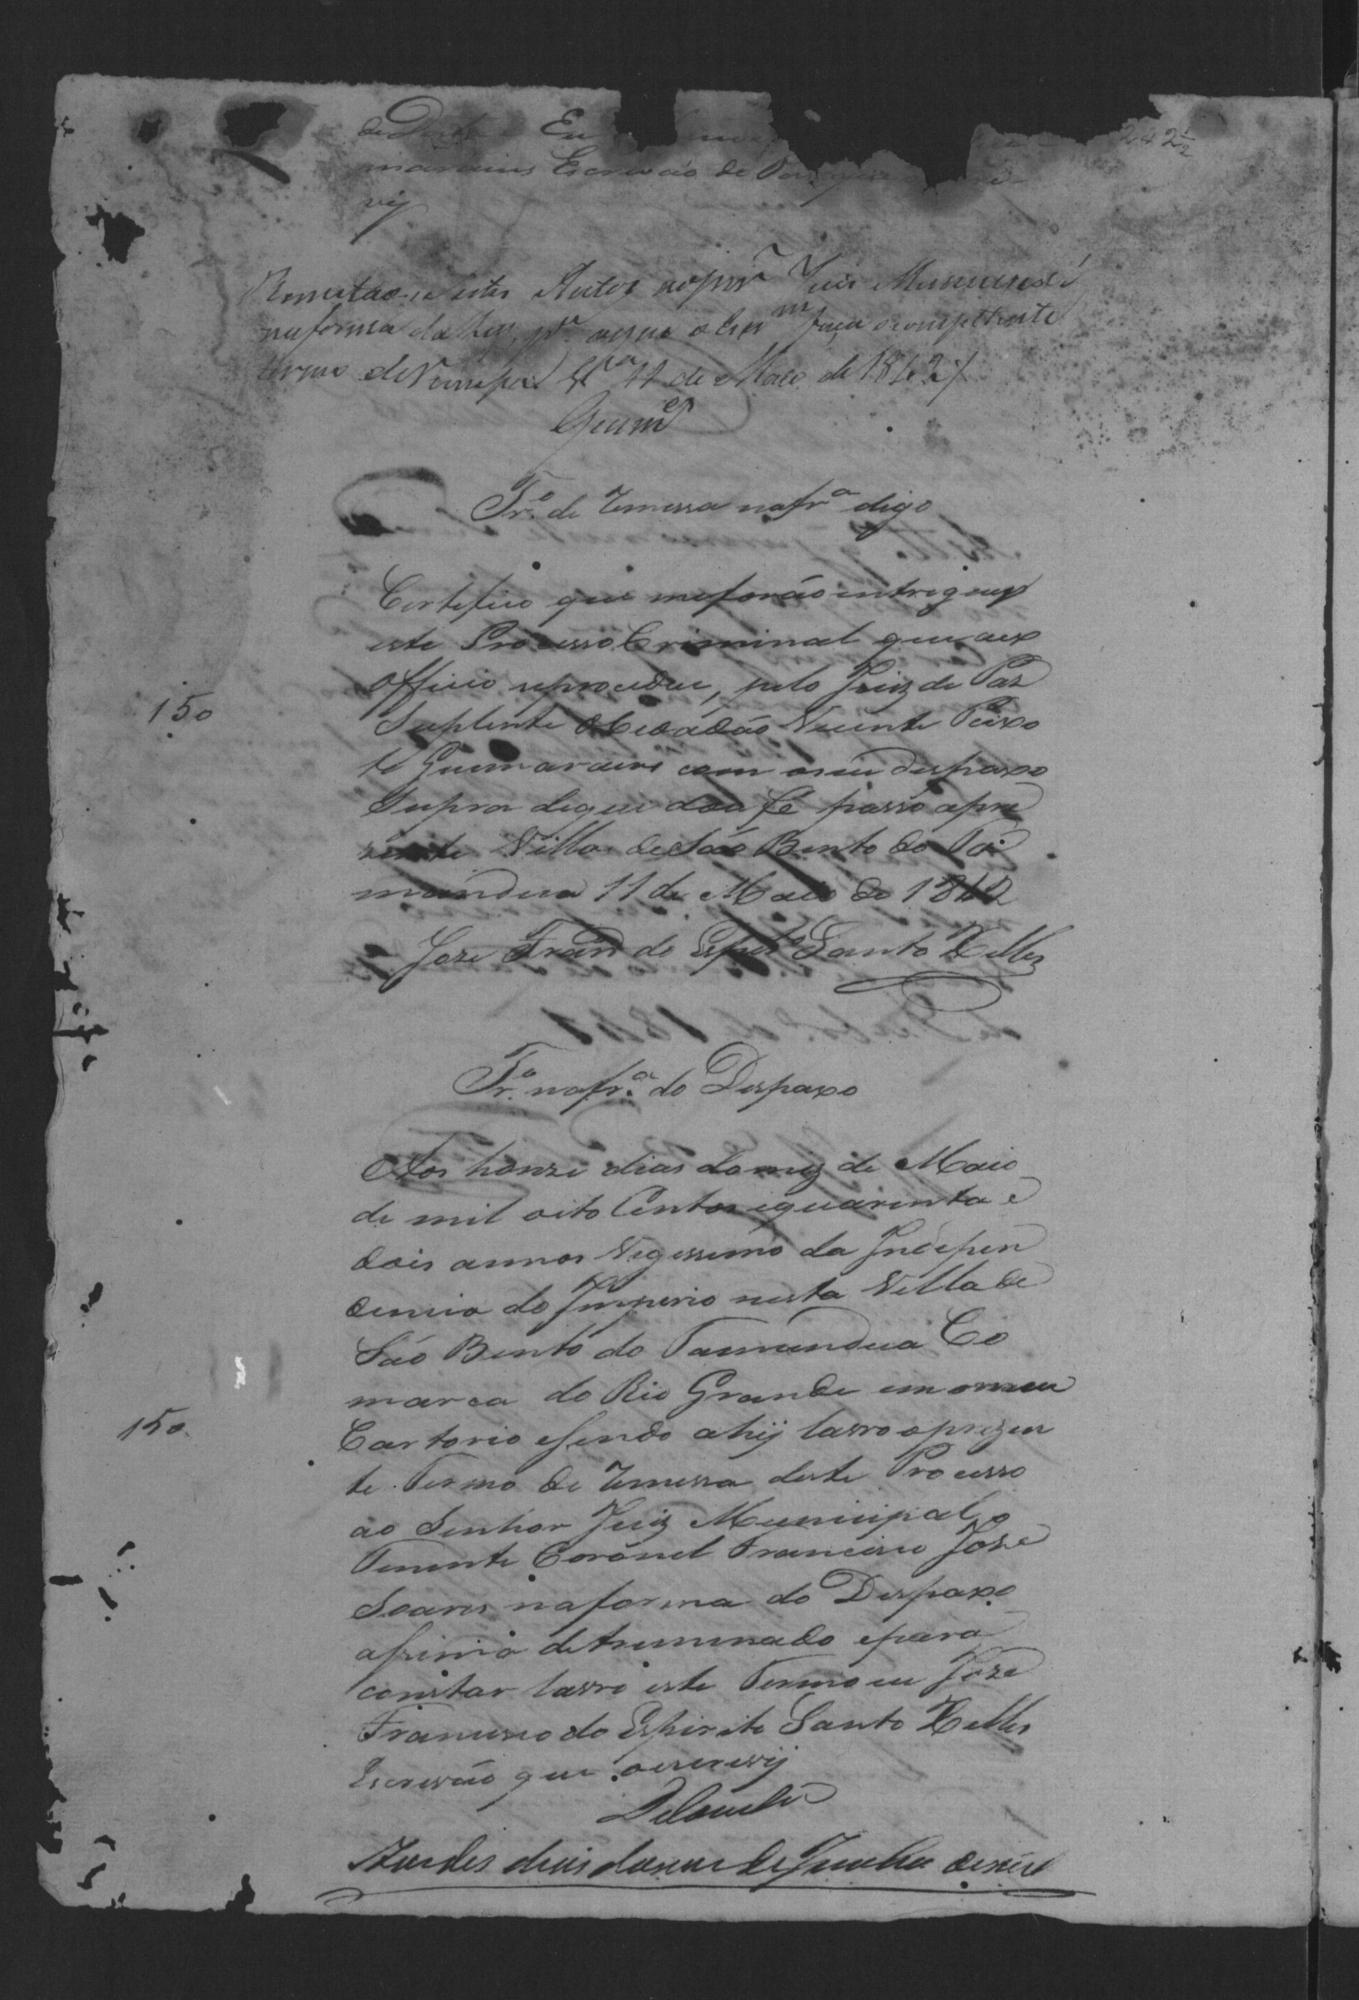 242½
Eu
Escrivão de
vij
Remetão-se estes Autos ao Juis Municipal
na forma da Lei, pª o Esm. faça o competente
termo de Vª 11 de Maio de 1842
Guimes
Trº de Remessa na frª digo
Certefico que me forão entregues
este Processo Criminal que aex
Officio seprocedeu, pelo Juiz de Paz
Suplente o Cidadão Vicente Peixo
to Guimaraens com o seu despaxo
Supra do que dou fé passo apre
zente Villa de São Bento do Ta
manduá 11 de Maio de 1842
Joze Franco do Espto Santo Telles
150
Trº na frª do Despaxo
Aos honze dias do mez de Maio
de mil oito Centos e quarenta e
dois annos Vigessimo da Indepen
dencia do Imperio nesta Villa de
São Bento do Tamanduá Co
marca do Rio Grande em o meu
Cartorio e sendo ahij lavro o prezen
te Termo de Remessa deste Processo
ao Senhor Juiz Municipal o
Tenente Coronel Francisco Joze
Soares na forma do Despaxo
asima detreminado e para
constar lavro este Termo eu Joze
Francisco do Espirito Santo Telles
Escrivão que o escrevij
150
dias do mez de Junho de mil